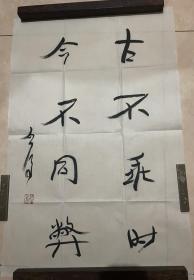 古不乖时
今不同弊